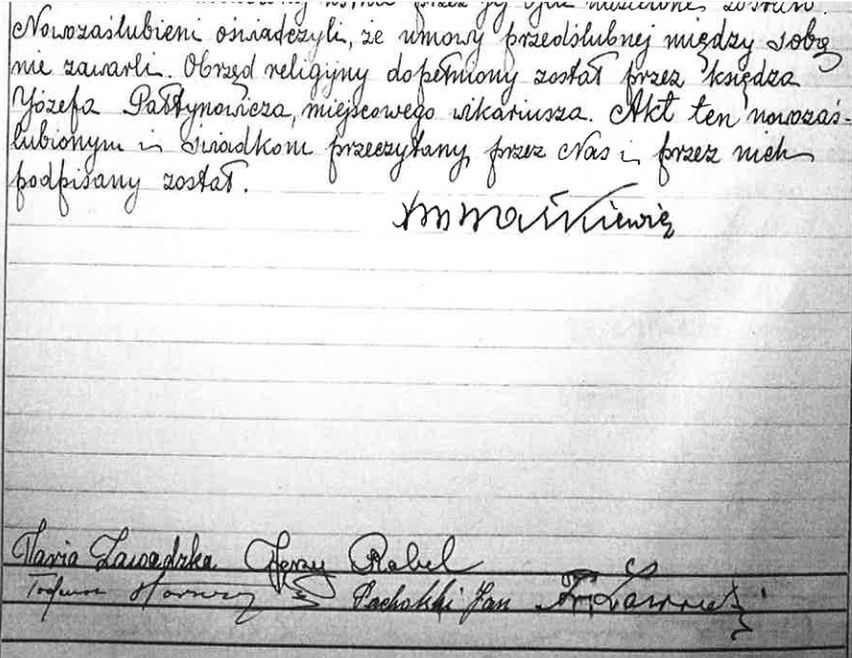 przez jej ojca
Nowozaślubieni oświadczyli, że umowy przedślubnej między sobą
nie zawarli. Obrzęd religijny dopełniony został przez księdza
Józefa Pałtynowicza, miejscowego wikariusza. Akt ten nowozaś-
lubionym i świadkom przeczytany, przez Nas i przez nich
podpisany został.
Maria Zawadzka Jerzy Rabel
Pachołski Jan